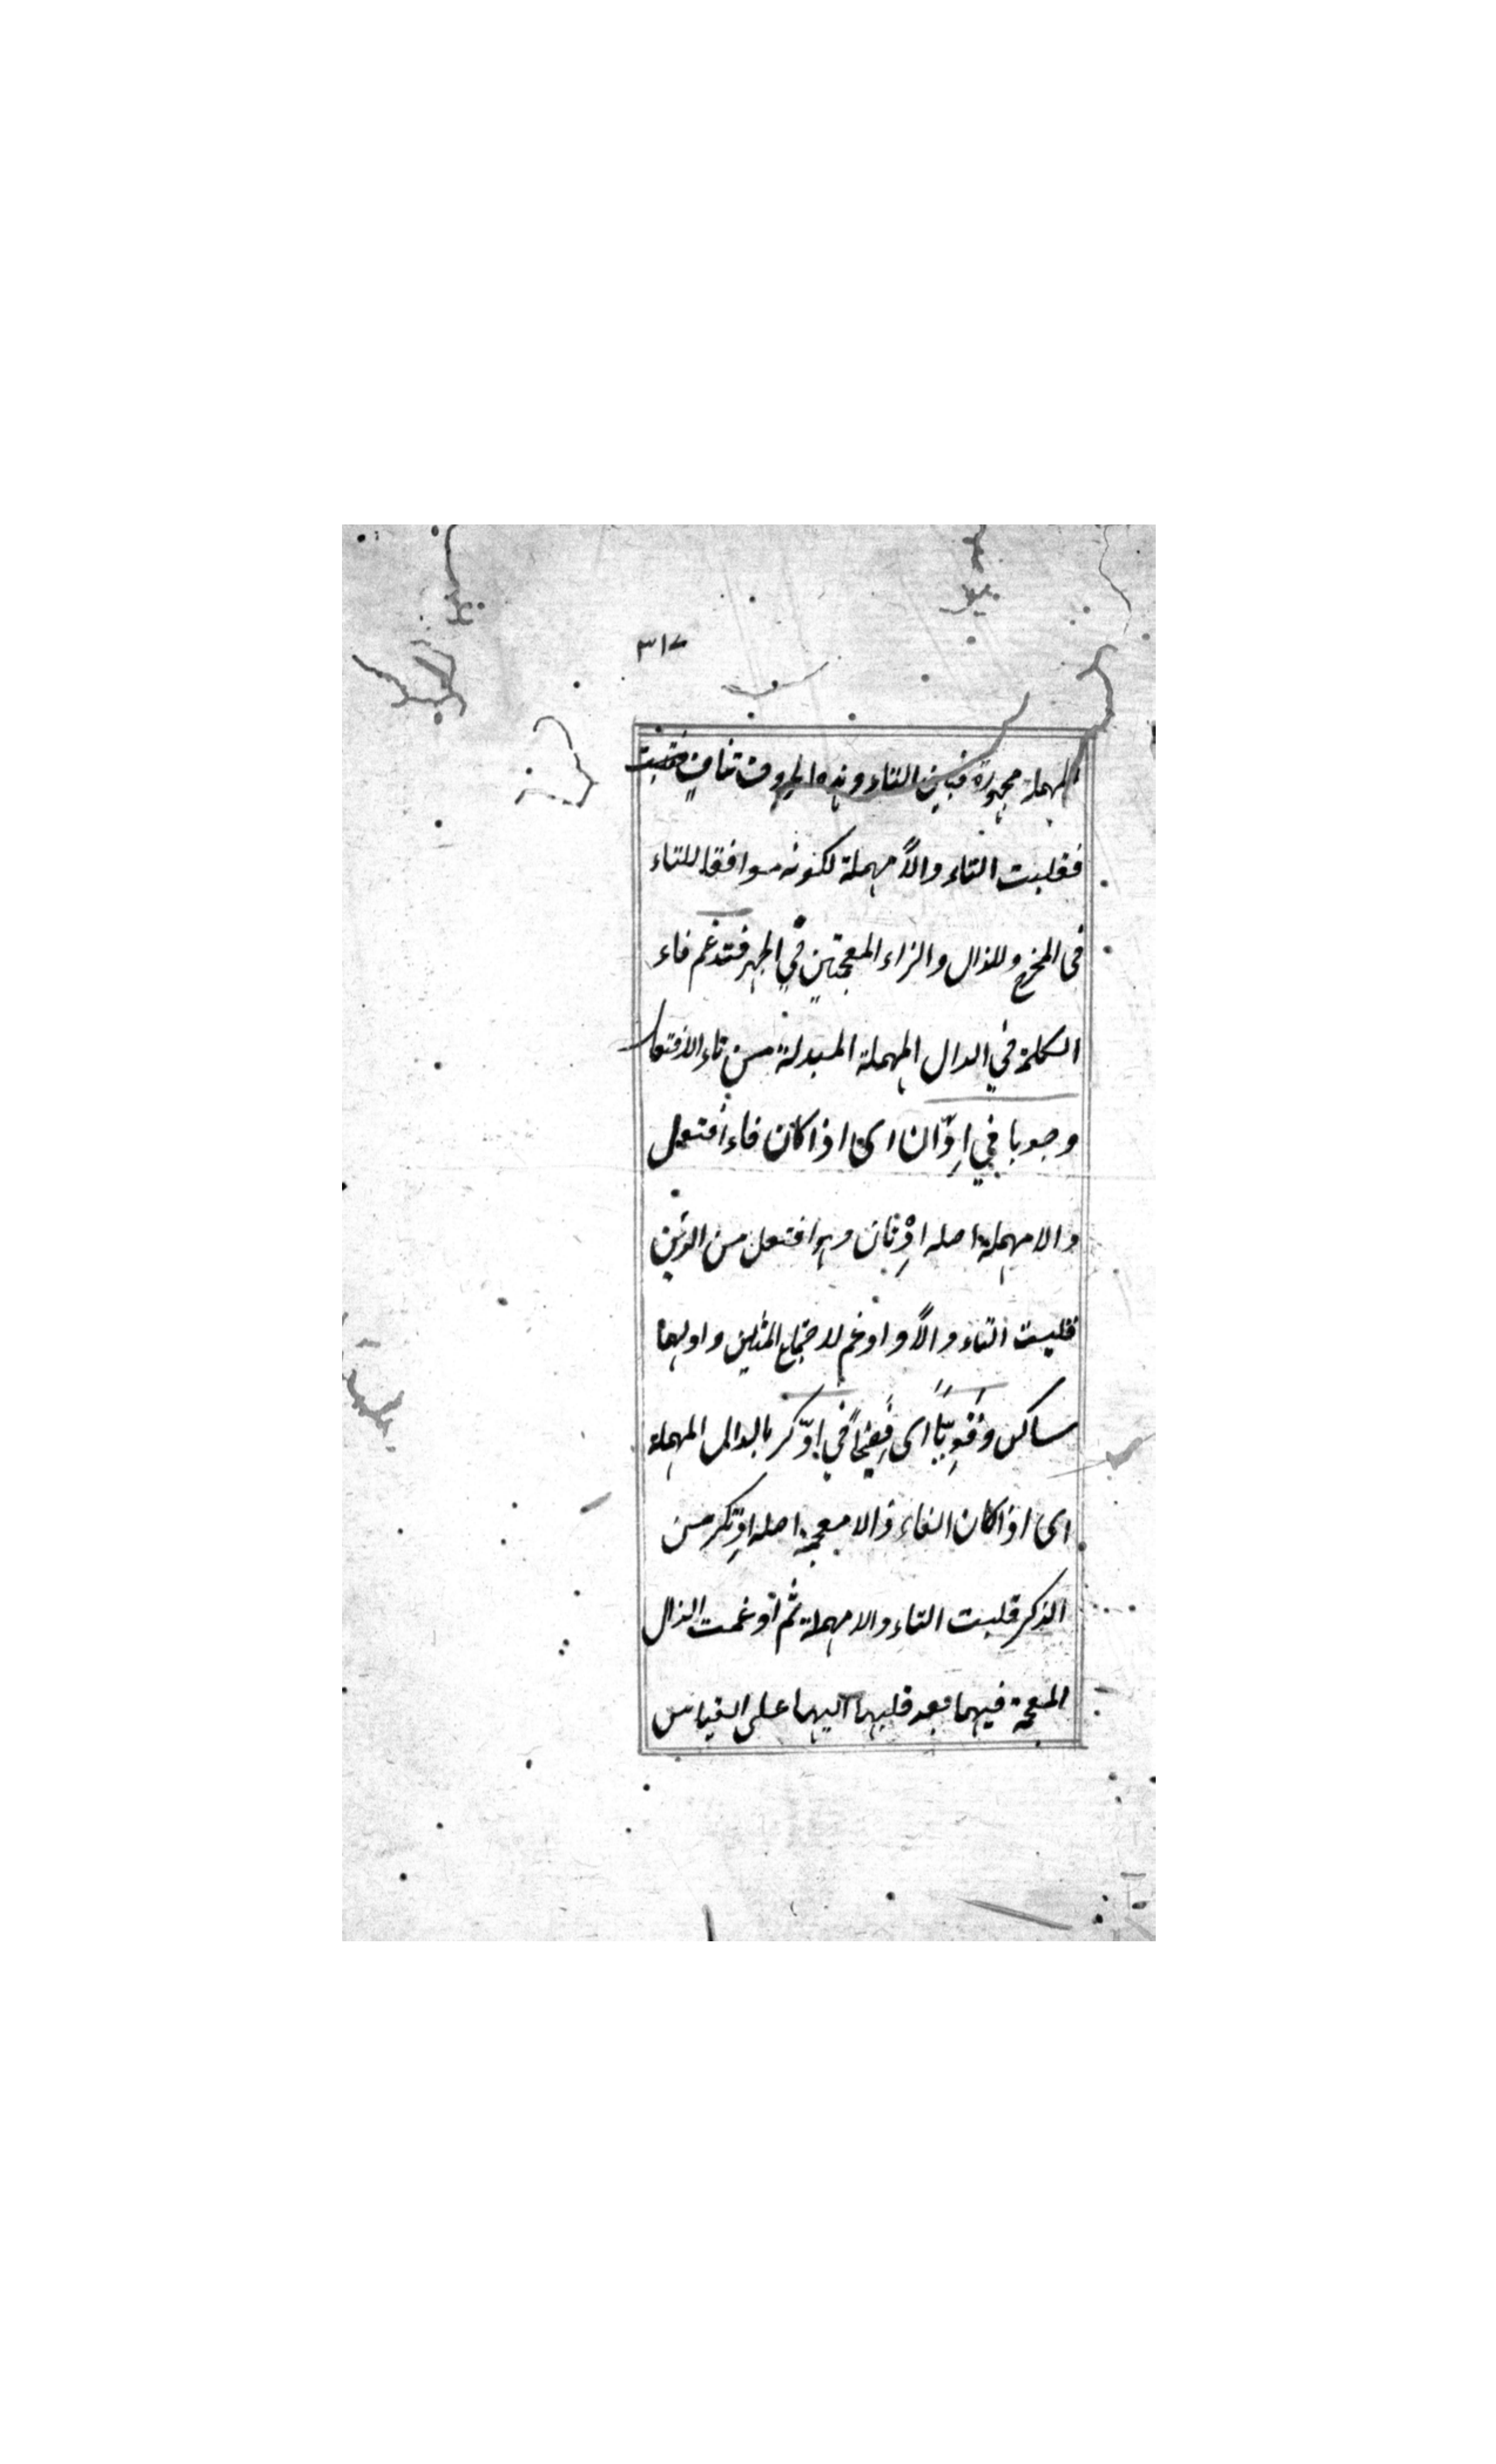 ٣١٧
المهملة مجهورة فبين التاء وهذه الحروف تناف
فقلبت التاء دالاً مهملة لكونه موافقا للتاء
فى المخرج وللذال والزاء المعجمتين في الجهر فتدغم فاء
الكلمة في الدال المهملة المبدلة من تاء الافتعال
وجوبا في اِدّان اى اذا كان فاء افتعل
دالا مهملة اصله اِدْتان وهو افتعل من الدَّين
قلبت التاء دالاً وادغم لاجتماع المثلين واولهما
ساكن وقَوِيّاً اى فصيحاً في اِدّكر بالدال المهملة
اى اذا كان الفاء ذالا معجمة اصله اِذتكر من
الذكر قلبت التاء دالا مهملة ثم ادغمت الذال
المعجمة فيهما بعد قلبهما اليهما على القياس